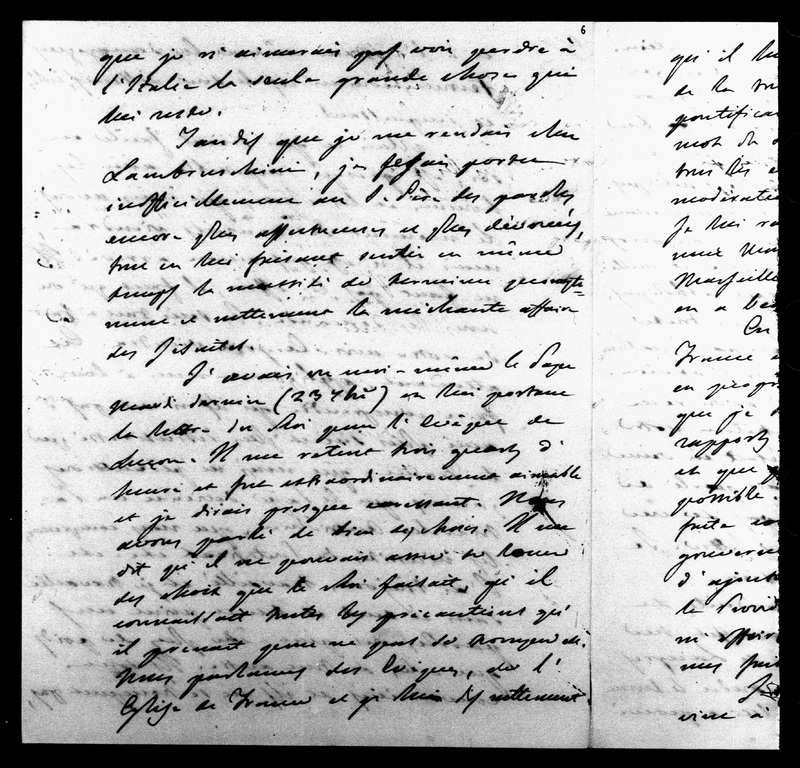 6
que je n'aimerais pas voir perdre à
l'Italie la seule grande chose qui
lui reste.
Tandis que je me rendais chez
Lambruschini, je faisais porter
inofficiellement au S. Père des paroles
encore plus affectueuses et plus dévouées,
tout en lui faisant sentir en même
temps la nécessité de terminer prompte=
ment et nettement la méchante affaire
des Jésuites.
J'avais vu moi-même le Pape
mardi dernier (23 ) en lui portant
la lettre du Roi pour l'Evêque de
Luçon. Il me retint trois quarts d'
heure et fut extraordinairement aimable
et je dirais presque caressant. Nous
avons parlé de bien des choses. Il me
dit qu'il ne pouvait assez se louer
des choix que le Roi faisait, qu'il
connaissait toutes les précautions qu'
il prenait pour ne pas se tromper &c.
Nous parlames des Evêques, de l'
Eglise de France et je lui dis nettement
qu'il lui
de la
pontifica
mot
tous les
modérati
Je lui
Marseille
en a
France
en progr
que je
rapports
et que
possible.
faite
gouverne
d'ajout
la Provid
ni
vivre à